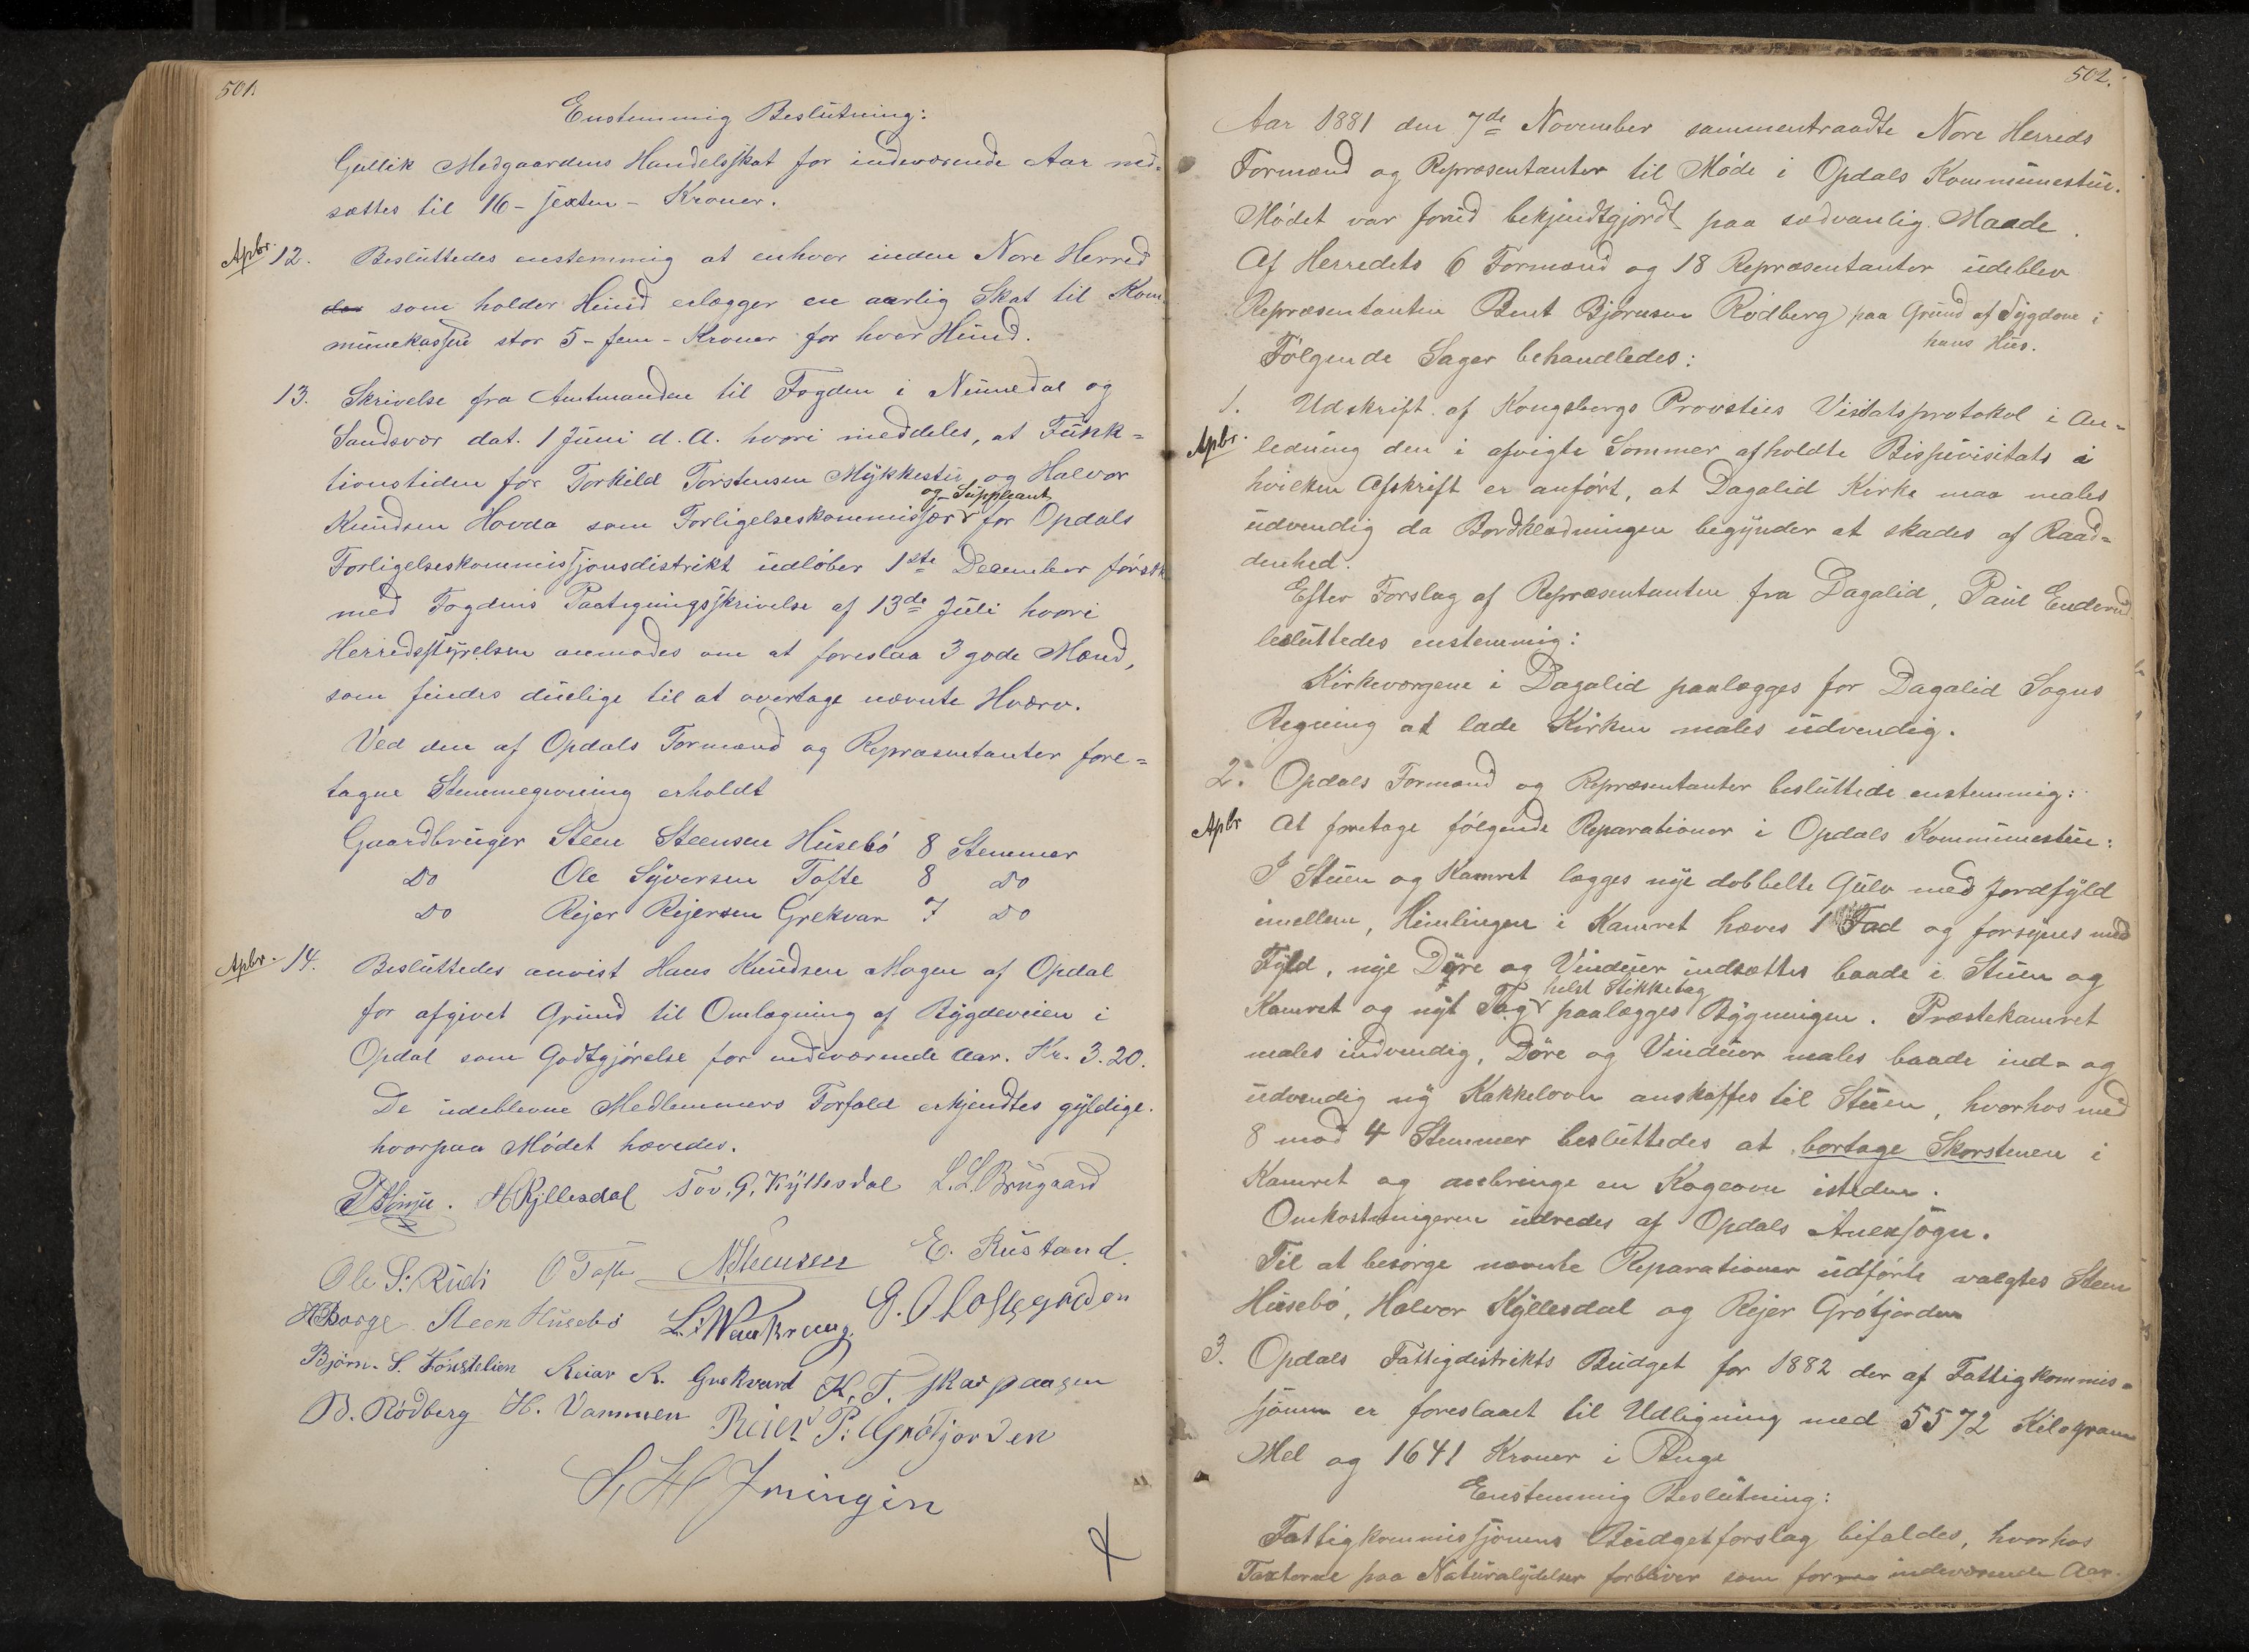 501.
Enstemmig Beslutning:
Gullik Medgaardens Handelsskat for indeværende Aar ned-
sættes til 16 - sexten - Kroner.
Apbr. 12. Besluttedes enstemmig at enhver inden Nore Herred
som holder Hund erlægger en aarlig Skat til Kom-
munekassen stor 5 - fem - Kroner for hver Hund.
13. Skrivelse fra Amtmanden til Fogden i Numedal og
Sandsvær dat. 1 Juni d. A. hvori meddeles, at Funk=
tionstiden for Torkild Torstensen Mykkestu og Halvor
og Suppleant
Knudsen Hovda som Forligelseskommissær for Opdals
Forligelseskommissjonsdistrikt udløber 1ste December førstk
med Fogdens Paategningsskrivelse af 13de Juli hvori
Herredsstyrelsen anmodes om at foreslaa 3 gode Mænd,
som findes duelige til at overtage nævnte Hværv.
Ved den af Opdals Formænd og Repræsentanter fore=
tagne Stemmegivning erholdt
Gaardbruger Steen Steensen Husebø 8 Stemmer
Do Ole Syversen Tofte 8 Do
Do Rejer Rejersen Grekvar 7 Do
Apbr. 14. Besluttedes anvist Hans Knudsen Mogen af Opdal
for afgivet Grund til Omlægning af Bygdeveien i
Opdal som Godtgjørelse for indeværende Aar. Kr. 3.20.
De udeblevne Medlemmers Forfald erkjendtes gyldige.
hvorpaa Mødet hævedes.
H Kyllesdal Tov. G. Kyllesdal L. L. Brugaard
Ole S. Rudi O Tofte N Steensen E. Rustand.
H Borge Steen Husebø
Björn. S. Tønstelien Reiar R. Grekvard K. T. Skarpaasen
B. Rødberg H. Vammen Reier P. Grøtjorden
502.
Aar 1881 den 7de November sammentraadte Nore Herreds
Formænd og Repræsentanter til Møde i Opdals Kommunestue.
Mødet var forud bekjendtgjordt paa sædvanlig Maade.
Af Herredets 6 Formænd og 18 Repræsentanter udeblev
Repræsentanten Bent Bjørnsen Rødberg paa Grund af Sygdom i
hans Hus.
Følgende Sager behandledes:
1. Udskrift af Kongsbergs Provsties Visitatsprotokol i An=
Apbr. ledning den i afvigte Sommer afholdte Bispevisitats i
hvilken Afskrift er anført, at Dagalid Kirke maa males
udvendig da Bordklædningen begynder at skades af Raad=
denhed.
Efter Forslag af Repræsentanten fra Dagalid, Paul Enderud
besluttedes enstemmig:
Kirkeværgene i Dagalid paalægges for Dagalid Sogns
Regning at lade Kirken males udvendig.
2. Opdals Formænd og Repræsentanter besluttede enstemmig:
Apbr At foretage følgende Reparationer i Opdals Kommunestue:
I Stuen og Kamret lægges nye dobbelte Gulv med Jordfyld
imellem, Himlingen i Kamret hæves 1 Fod og forsynes med
Fyld, nye Døre og Vinduer indsættes baade i Stuen og
helst Stikketag
Kamret og nyt Tag paalægges Bygningen. Præstekamret
males indvendig, Døre og Vinduer males baade ind= og
udvendig ny Kakkelovn anskaffes til Stuen, hvorhos med
8 mod 4 Stemmer besluttedes at bortage Skorstenen i
Kamret og anbringe en Kogeovn isteden.
Omkostningerne udredes af Opdals Anexsogn.
Til at besørge nævnte Reparationer udførte valgtes Steen
Husebø, Halvor Kyllesdal og Rejer Grøtjorden
3. Opdals Fattigdistrikts Budget for 1882 der af Fattigkommis=
sjonen er foreslaaet til Udligning med 5572 Kilogram
Mel og 1641 Kroner i Penge
Enstemmig Beslutning:
Fattigkommissjonens Budgetforslag bifaldes, hvorhos
Taxterne paa Naturalydelser forbliver som for indeværende Aar.